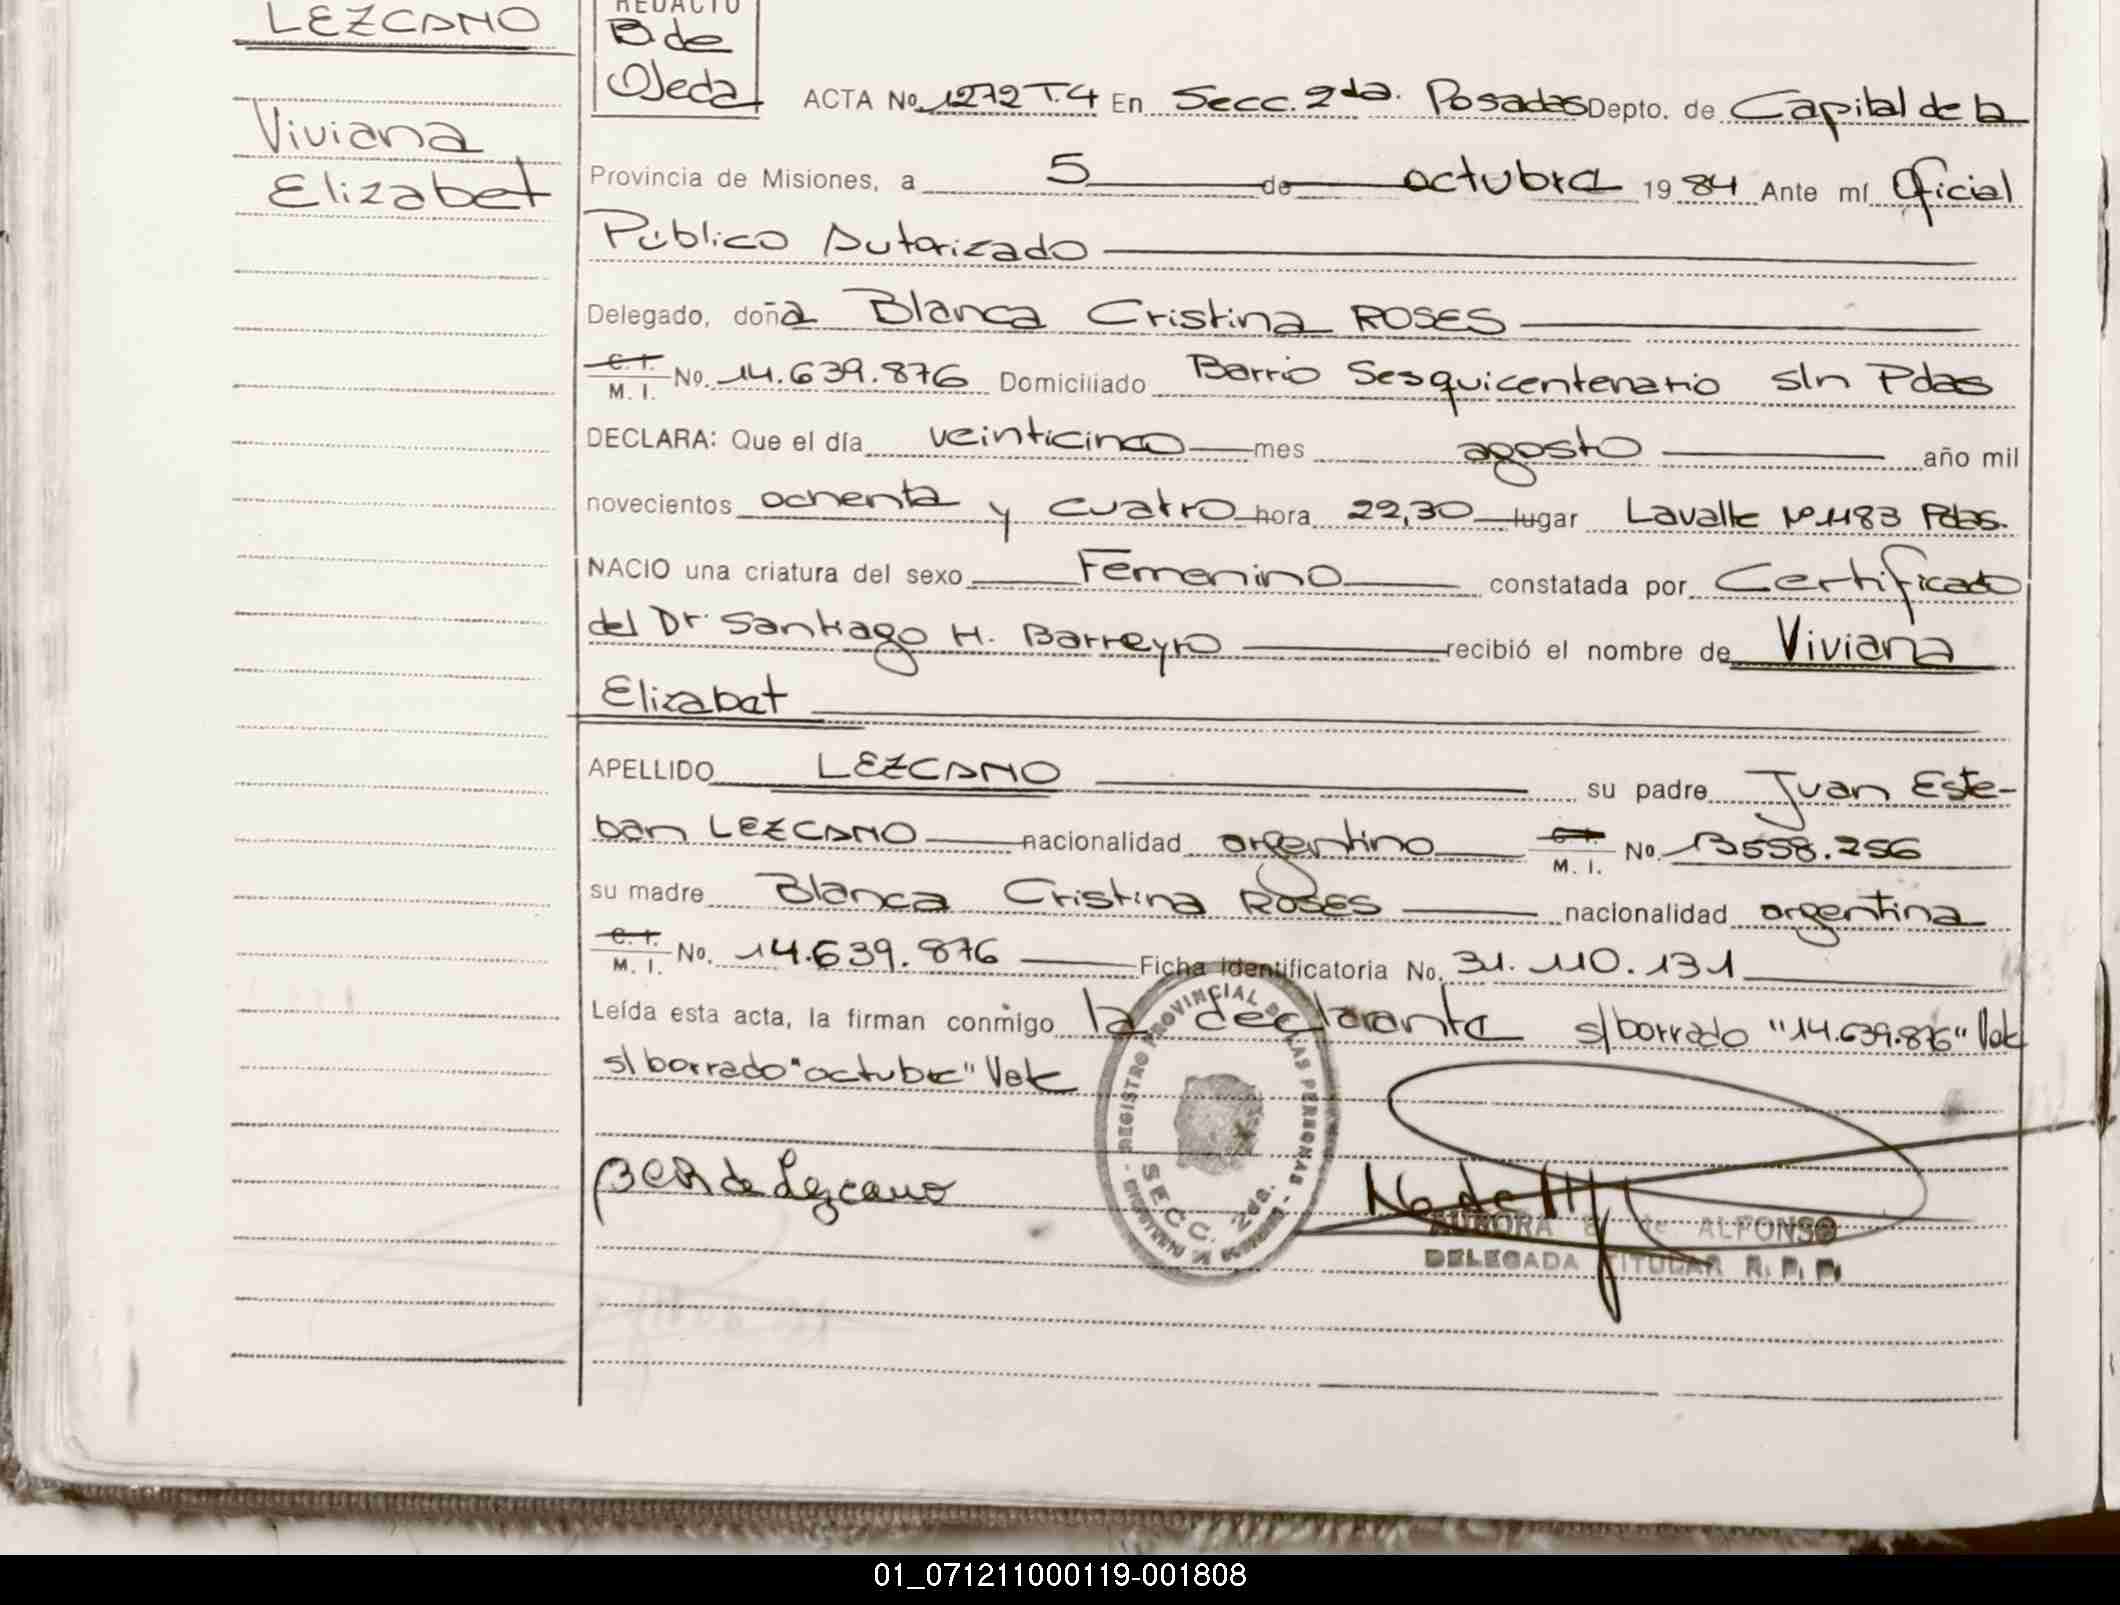 LEZCANO
Viviana
Elizabet
REDACTO
B de
Ojeda
ACTA No. 1272 T.4 En Secc. 2da. Posadas Depto. de Capital de la
Provincia de Misiones, a 5 de octubre 1984 Ante mí Oficial
Público Autorizado
Delegado, doña Blanca Cristina ROSES
C. I. M. I. No. 14.639.876 Domiciliado Barrio Sesquicentenario s/n Pdas
DECLARA: Que el día veinticinco mes agosto año mil
novecientos ochenta y cuatro hora 22,30 lugar Lavalle Nº 1183 Pdas.
NACIO una criatura del sexo Femenino constatada por Certificado
del Dr. Santiago H. Barreyro recibió el nombre de Viviana
Elizabet
APELLIDO LEZCANO su padre Juan Este-
ban LEZCANO nacionalidad argentino C. I. M. I. No. 13558.256
su madre Blanca Cristina ROSES nacionalidad argentina
C. I. M. I. No. 14.639.876 Ficha identificatoria No. 31.110.131
Leída esta acta, la firman conmigo la declarante s/borrado "14.639.876" Vale
s/borrado "octubre" Vale
B C R de Lezcano
REGISTRO PROVINCIAL DE LAS PERSONAS
SECC. 2da.
AURORA de ALFONSO
DELEGADA TITULAR R. P. P.
01_071211000119-001808